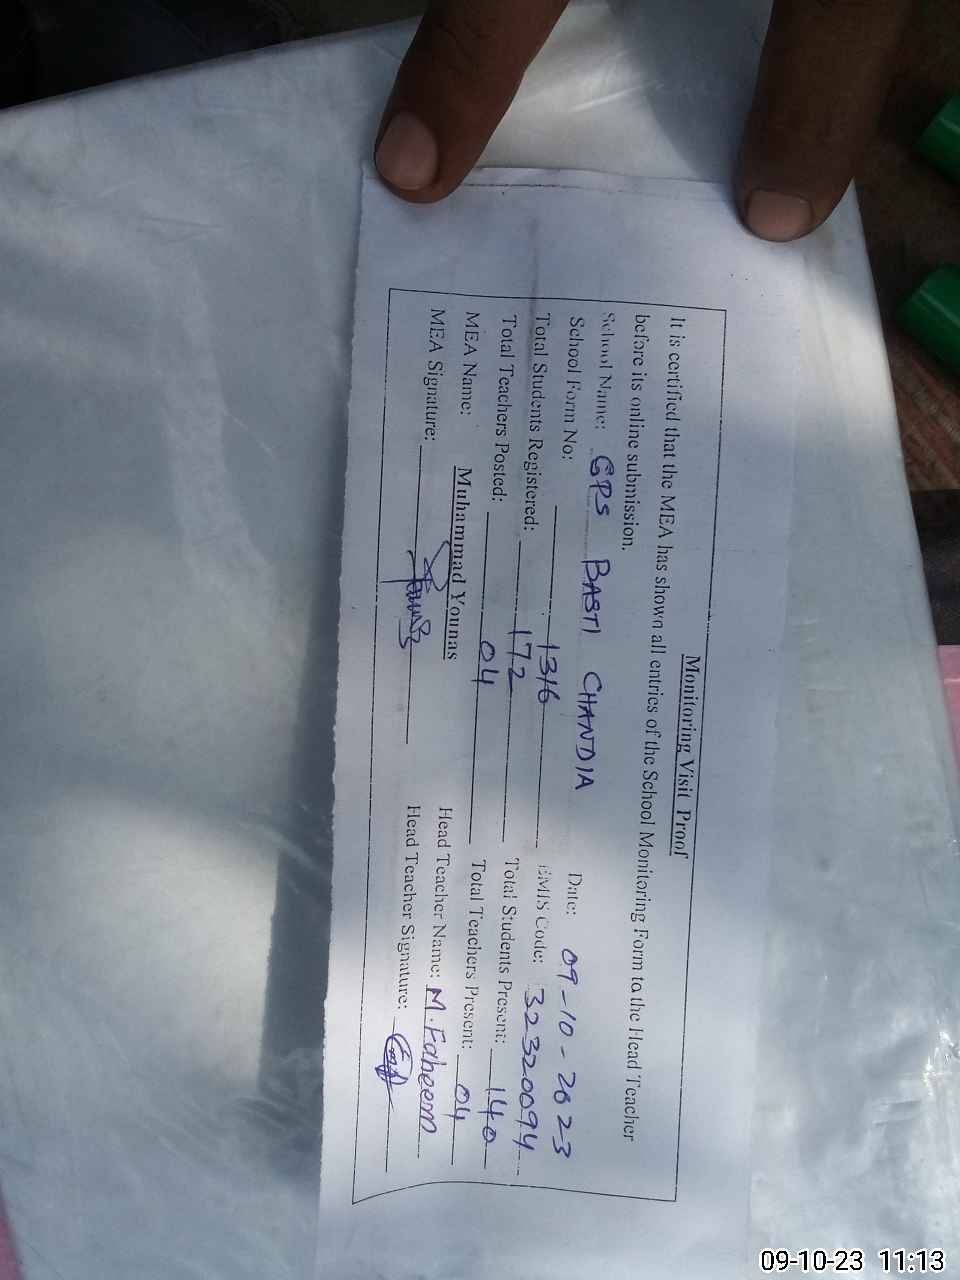 Monitoring Visit Proof
It is certified that the MEA has shown all entries of the School Monitoring Form to the Head Teacher
before its online submission.
School Name: GPS BASTI CHANDIA Date: 09-10-2023
School Form No: 1316 EMIS Code: 32320094
Total Students Registered: 172 Total Students Present: 140
Total Teachers Posted: 04 Total Teachers Present: 04
MEA Name: Muhammad Younas Head Teacher Name: M. Faheem
MEA Signature: Head Teacher Signature:
09-10-23 11:13